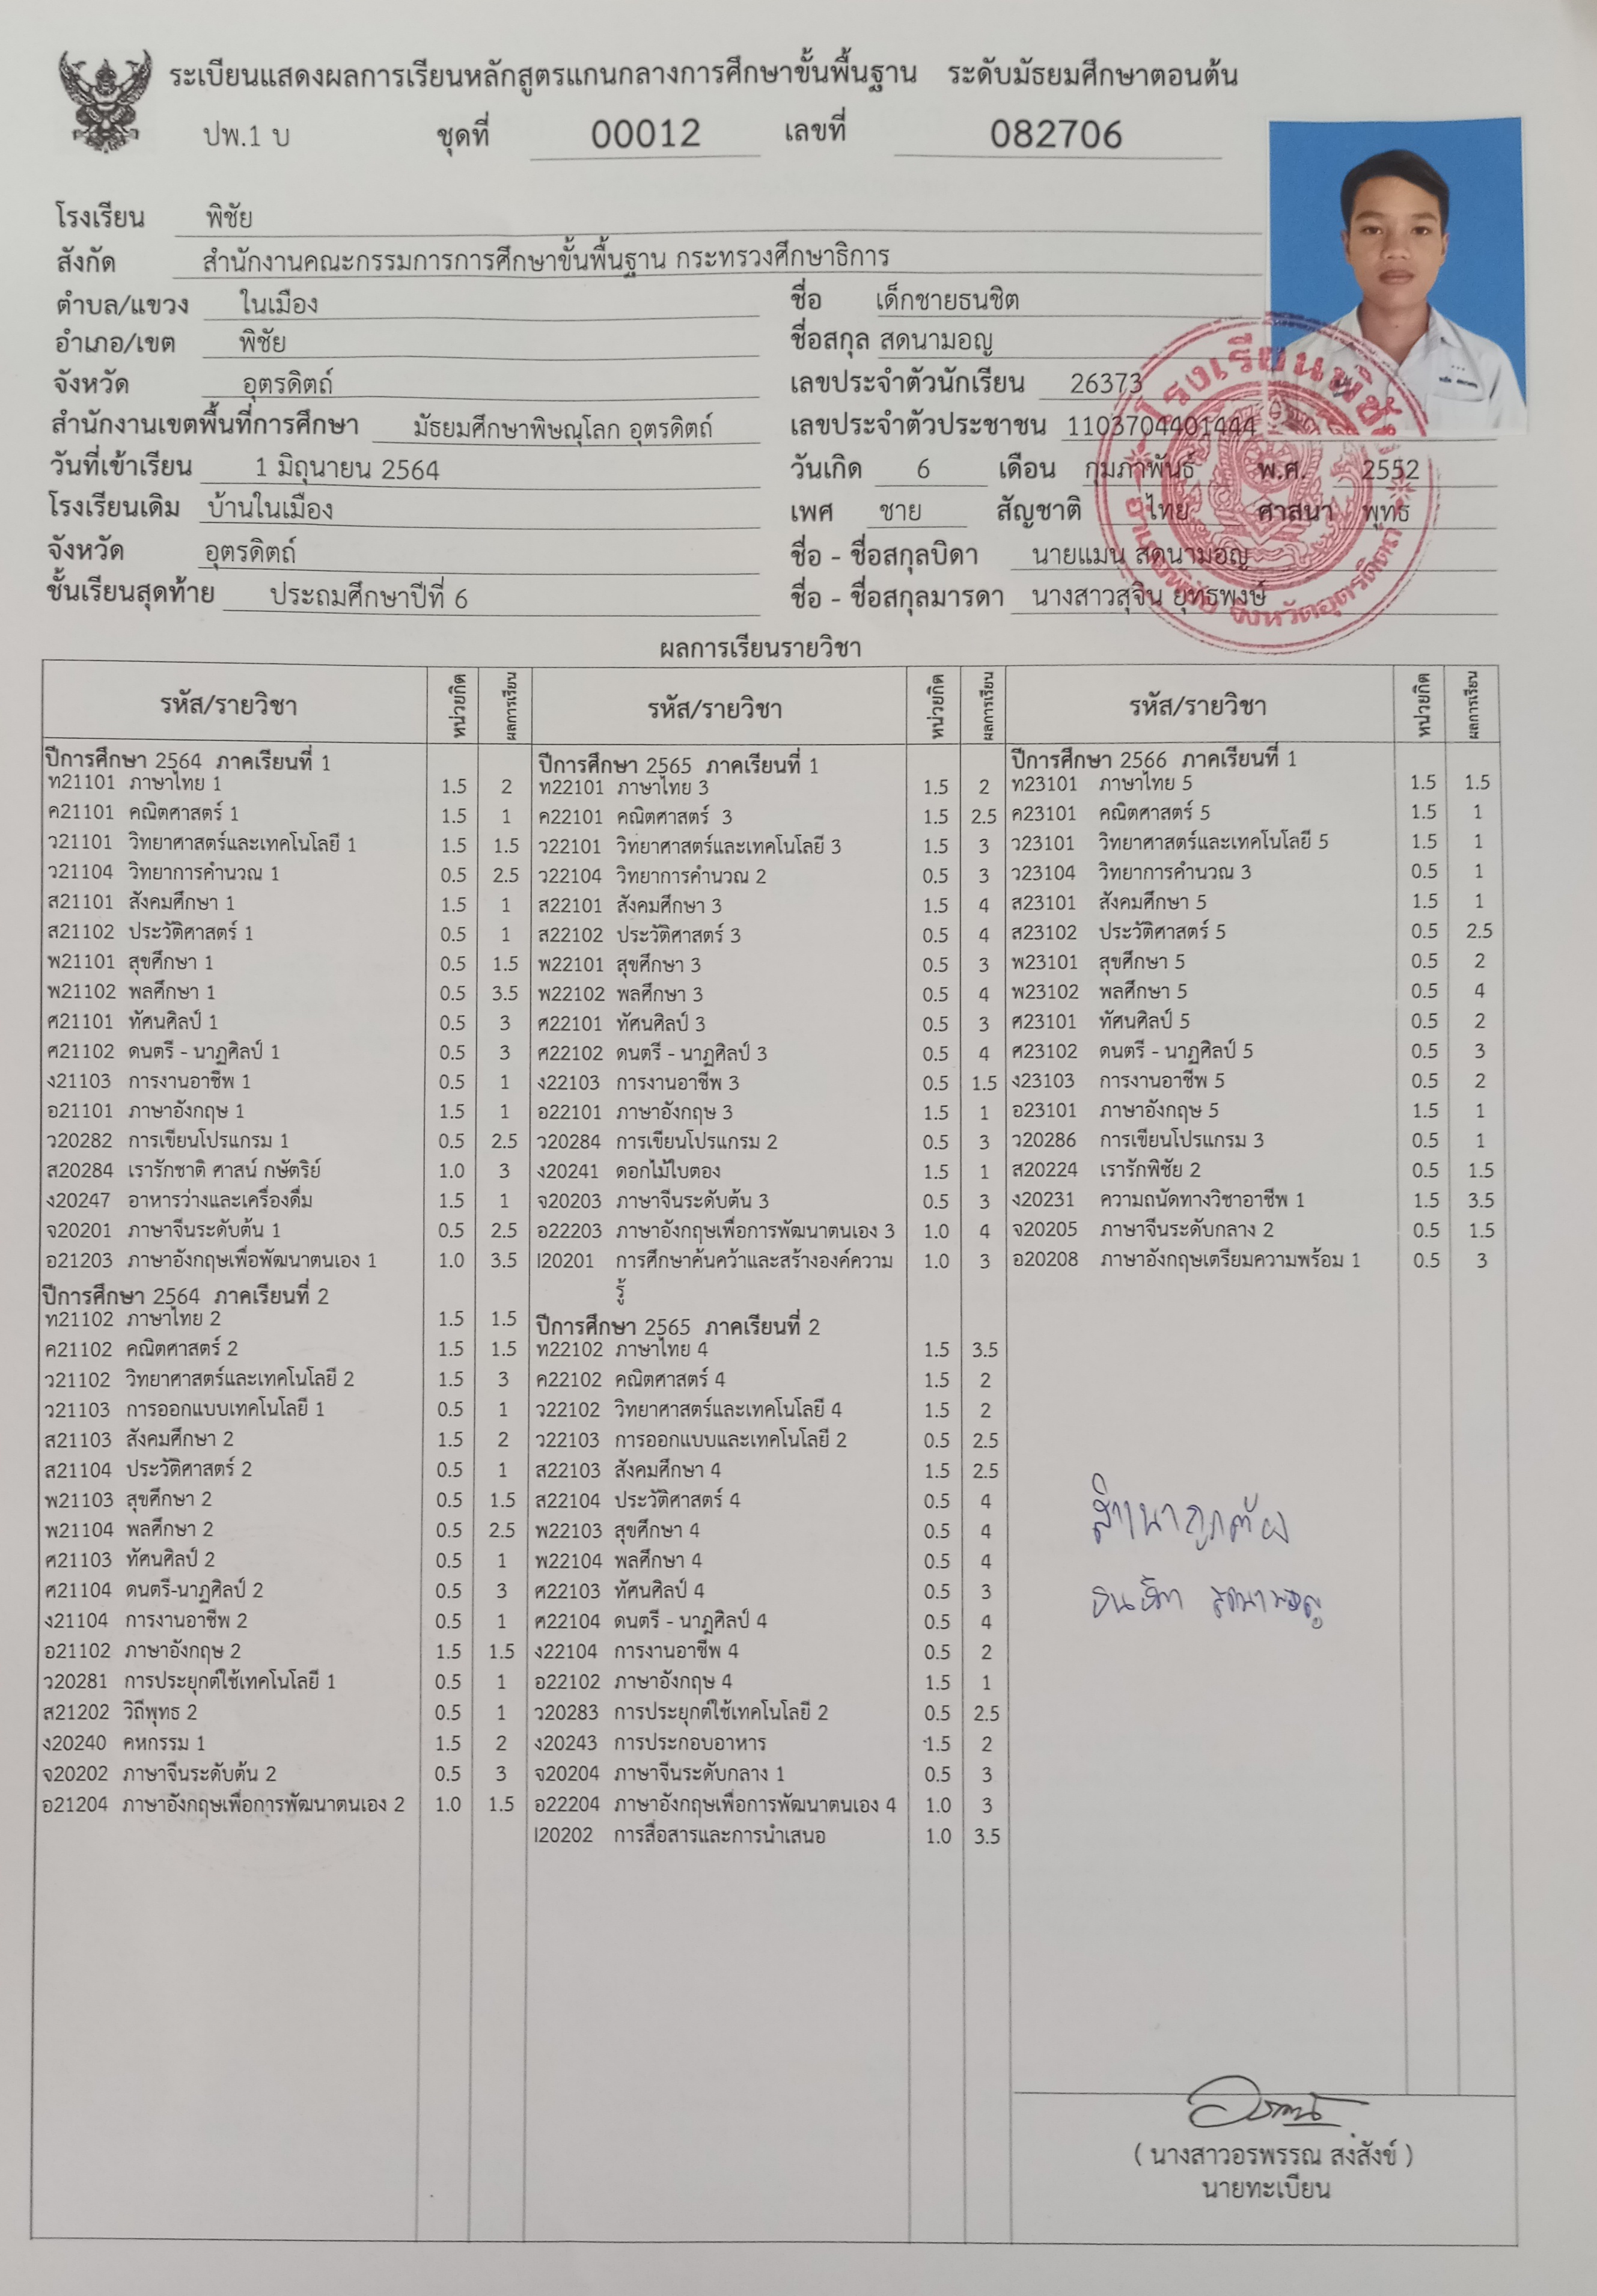 ระเบียนแสดงผลการเรียนหลักสูตรแกนกลางการศึกษาขั้นพื้นฐาน ระดับมัธยมศึกษาตอนต้น
ปพ.1 บ ชุดที่ 00012 เลขที่ 082706
โรงเรียน พิชัย
สังกัด สำนักงานคณะกรรมการการศึกษาขั้นพื้นฐาน กระทรวงศึกษาธิการ
ตำบล/แขวง ในเมือง
อำเภอ/เขต พิชัย
จังหวัด อุตรดิตถ์
สำนักงานเขตพื้นที่การศึกษา มัธยมศึกษาพิษณุโลก อุตรดิตถ์
วันที่เข้าเรียน 1 มิถุนายน 2564
โรงเรียนเดิม บ้านในเมือง
จังหวัด อุตรดิตถ์
ชั้นเรียนสุดท้าย ประถมศึกษาปีที่ 6
ชื่อ เด็กชายธนชิต
ชื่อสกุล สดนามอญ
เลขประจำตัวนักเรียน 26373
เลขประจำตัวประชาชน 1103704401444
วันเกิด 6 เดือน กุมภาพันธ์ พ.ศ. 2552
เพศ ชาย สัญชาติ ไทย ศาสนา พุทธ
ชื่อ - ชื่อสกุลบิดา นายแมน สดนามอญ
ชื่อ - ชื่อสกุลมารดา นางสาวสุจิน ยุทธพงษ์
โรงเรียนพิชัย
อำเภอพิชัย จังหวัดอุตรดิตถ์
ผลการเรียนรายวิชา
รหัส/รายวิชา หน่วยกิต ผลการเรียน
ปีการศึกษา 2564 ภาคเรียนที่ 1
ท21101 ภาษาไทย 1 1.5 2
ค21101 คณิตศาสตร์ 1 1.5 1
ว21101 วิทยาศาสตร์และเทคโนโลยี 1 1.5 1.5
ว21104 วิทยาการคำนวณ 1 0.5 2.5
ส21101 สังคมศึกษา 1 1.5 1
ส21102 ประวัติศาสตร์ 1 0.5 1
พ21101 สุขศึกษา 1 0.5 1.5
พ21102 พลศึกษา 1 0.5 3.5
ศ21101 ทัศนศิลป์ 1 0.5 3
ศ21102 ดนตรี - นาฏศิลป์ 1 0.5 3
ง21103 การงานอาชีพ 1 0.5 1
อ21101 ภาษาอังกฤษ 1 1.5 1
ว20282 การเขียนโปรแกรม 1 0.5 2.5
ส20284 เรารักชาติ ศาสน์ กษัตริย์ 1.0 3
ง20247 อาหารว่างและเครื่องดื่ม 1.5 1
จ20201 ภาษาจีนระดับต้น 1 0.5 2.5
อ21203 ภาษาอังกฤษเพื่อพัฒนาตนเอง 1 1.0 3.5
ปีการศึกษา 2564 ภาคเรียนที่ 2
ท21102 ภาษาไทย 2 1.5 1.5
ค21102 คณิตศาสตร์ 2 1.5 1.5
ว21102 วิทยาศาสตร์และเทคโนโลยี 2 1.5 3
ว21103 การออกแบบเทคโนโลยี 1 0.5 1
ส21103 สังคมศึกษา 2 1.5 2
ส21104 ประวัติศาสตร์ 2 0.5 1
พ21103 สุขศึกษา 2 0.5 1.5
พ21104 พลศึกษา 2 0.5 2.5
ศ21103 ทัศนศิลป์ 2 0.5 1
ศ21104 ดนตรี-นาฏศิลป์ 2 0.5 3
ง21104 การงานอาชีพ 2 0.5 1
อ21102 ภาษาอังกฤษ 2 1.5 1.5
ว20281 การประยุกต์ใช้เทคโนโลยี 1 0.5 1
ส21202 วิถีพุทธ 2 0.5 1
ง20240 คหกรรม 1 1.5 2
จ20202 ภาษาจีนระดับต้น 2 0.5 3
อ21204 ภาษาอังกฤษเพื่อการพัฒนาตนเอง 2 1.0 1.5
รหัส/รายวิชา หน่วยกิต ผลการเรียน
ปีการศึกษา 2565 ภาคเรียนที่ 1
ท22101 ภาษาไทย 3 1.5 2
ค22101 คณิตศาสตร์ 3 1.5 2.5
ว22101 วิทยาศาสตร์และเทคโนโลยี 3 1.5 3
ว22104 วิทยาการคำนวณ 2 0.5 3
ส22101 สังคมศึกษา 3 1.5 4
ส22102 ประวัติศาสตร์ 3 0.5 4
พ22101 สุขศึกษา 3 0.5 3
พ22102 พลศึกษา 3 0.5 4
ศ22101 ทัศนศิลป์ 3 0.5 3
ศ22102 ดนตรี - นาฏศิลป์ 3 0.5 4
ง22103 การงานอาชีพ 3 0.5 1.5
อ22101 ภาษาอังกฤษ 3 1.5 1
ว20284 การเขียนโปรแกรม 2 0.5 3
ง20241 ดอกไม้ใบตอง 1.5 1
จ20203 ภาษาจีนระดับต้น 3 0.5 3
อ22203 ภาษาอังกฤษเพื่อการพัฒนาตนเอง 3 1.0 4
I20201 การศึกษาค้นคว้าและสร้างองค์ความ 1.0 3
รู้
ปีการศึกษา 2565 ภาคเรียนที่ 2
ท22102 ภาษาไทย 4 1.5 3.5
ค22102 คณิตศาสตร์ 4 1.5 2
ว22102 วิทยาศาสตร์และเทคโนโลยี 4 1.5 2
ว22103 การออกแบบและเทคโนโลยี 2 0.5 2.5
ส22103 สังคมศึกษา 4 1.5 2.5
ส22104 ประวัติศาสตร์ 4 0.5 4
พ22103 สุขศึกษา 4 0.5 4
พ22104 พลศึกษา 4 0.5 4
ศ22103 ทัศนศิลป์ 4 0.5 3
ศ22104 ดนตรี - นาฏศิลป์ 4 0.5 4
ง22104 การงานอาชีพ 4 0.5 2
อ22102 ภาษาอังกฤษ 4 1.5 1
ว20283 การประยุกต์ใช้เทคโนโลยี 2 0.5 2.5
ง20243 การประกอบอาหาร 1.5 2
จ20204 ภาษาจีนระดับกลาง 1 0.5 3
อ22204 ภาษาอังกฤษเพื่อการพัฒนาตนเอง 4 1.0 3
I20202 การสื่อสารและการนำเสนอ 1.0 3.5
รหัส/รายวิชา หน่วยกิต ผลการเรียน
ปีการศึกษา 2566 ภาคเรียนที่ 1
ท23101 ภาษาไทย 5 1.5 1.5
ค23101 คณิตศาสตร์ 5 1.5 1
ว23101 วิทยาศาสตร์และเทคโนโลยี 5 1.5 1
ว23104 วิทยาการคำนวณ 3 0.5 1
ส23101 สังคมศึกษา 5 1.5 1
ส23102 ประวัติศาสตร์ 5 0.5 2.5
พ23101 สุขศึกษา 5 0.5 2
พ23102 พลศึกษา 5 0.5 4
ศ23101 ทัศนศิลป์ 5 0.5 2
ศ23102 ดนตรี - นาฏศิลป์ 5 0.5 3
ง23103 การงานอาชีพ 5 0.5 2
อ23101 ภาษาอังกฤษ 5 1.5 1
ว20286 การเขียนโปรแกรม 3 0.5 1
ส20224 เรารักพิชัย 2 0.5 1.5
ง20231 ความถนัดทางวิชาอาชีพ 1 1.5 3.5
จ20205 ภาษาจีนระดับกลาง 2 0.5 1.5
อ20208 ภาษาอังกฤษเตรียมความพร้อม 1 0.5 3
สำเนาถูกต้อง
ธนชิต สดนามอญ
( นางสาวอรพรรณ สงสังข์ )
นายทะเบียน